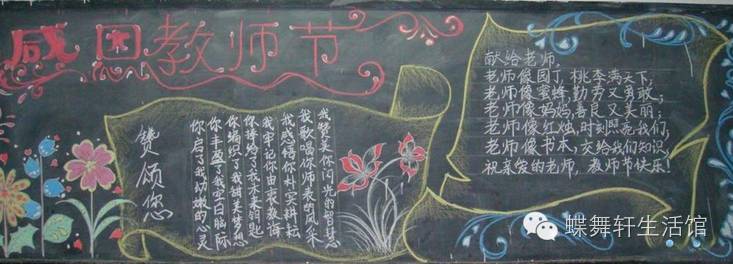 感恩教师节
赞颂您
你启了我幼嫩的心灵
你丰盈了我空白脑际
你编织了我甜美梦想
你捧给了我未来钥匙
我牢记你由衷教诲
我感悟你朴实耕耘
我歌唱你师表的风采
我赞美你闪光的智慧
献给老师,
老师像园丁,桃李满天下;
老师像蜜蜂,勤劳又勇敢;
老师像妈妈,善良又美丽;
老师像红烛,时刻照亮我们;
老师像书本,交给我们知识,
祝亲爱的老师,教师节快乐!
蝶舞轩生活馆